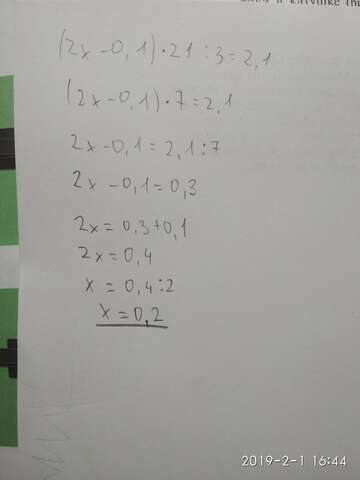 (2x-0,1)·21:3=2,1
(2x-0,1)·7=2,1
2x-0,1=2,1:7
2x-0,1=0,3
2x=0,3+0,1
2x=0,4
x=0,4:2
x=0,2
2019-2-1 16:44